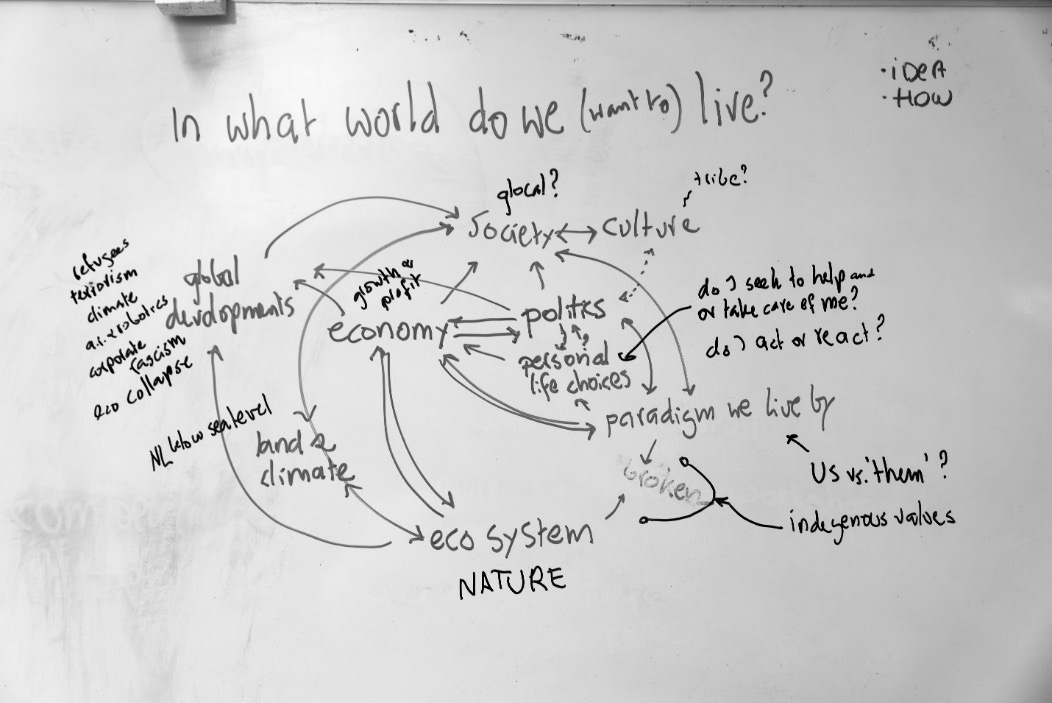 In what world do we (want to) live?
• iDeA
• HOW
glocal?
tribe?
Society
culture
refugees
terrorism
climate
a.i. & robotics
corporate
fascism
eco collapse
global
developments
growth &
profit
economy
politics
personal
life choices
do I seek to help and
or take care of me?
do I act or react?
paradigm we live by
NL below sea level
land &
climate
broken
Us vs. 'them'?
indegenous values
eco system
NATURE